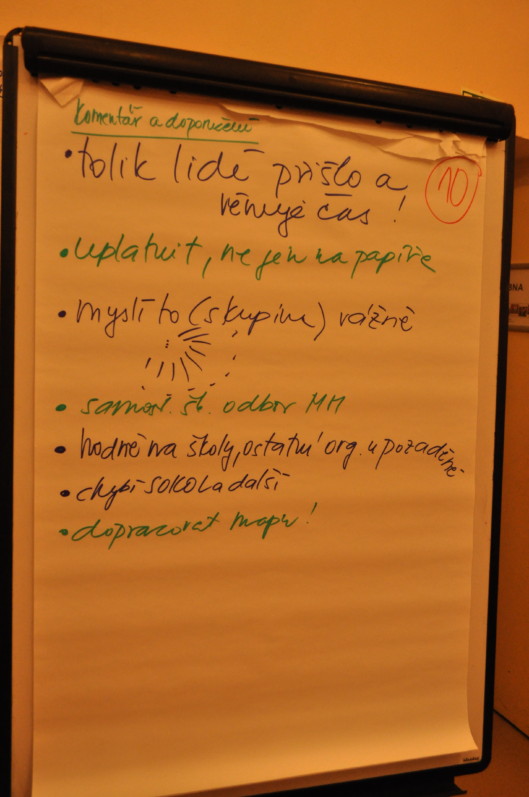 Komentář a doporučení
• tolik lidé prišlo a
věnuje čas!
10
• uplatnit, ne jen na papíře
• myslí to (skupina) vážně
• samost. šk. odbor MM
• hodně na školy, ostatní org. v pozaděně
• chybí SOKOL a další
• dopracovat mapu!